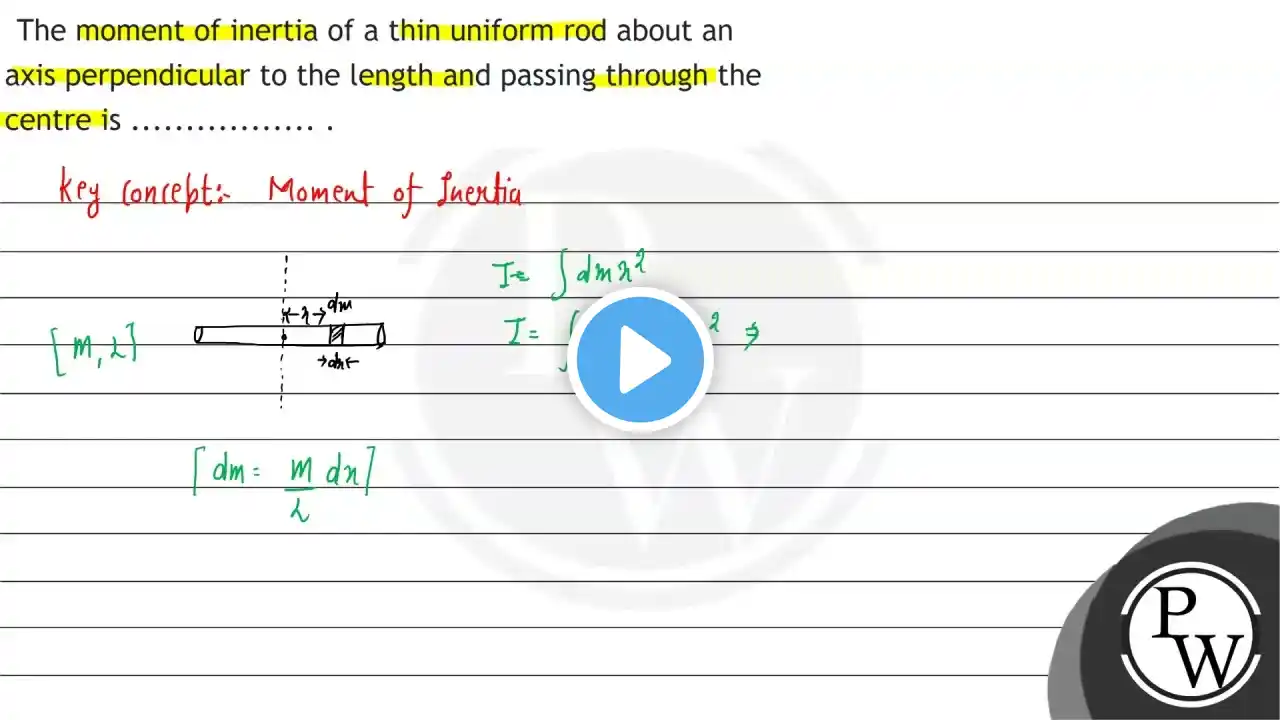 The moment of inertia of a thin uniform rod about an
axis perpendicular to the length and passing through the
centre is ................. .
Key concept:- Moment of Inertia
I = ∫ dm x²
dm
x
[M, L]
I = ∫ ² ⇒
dx
[dm = M/L dx]
P
W
PW